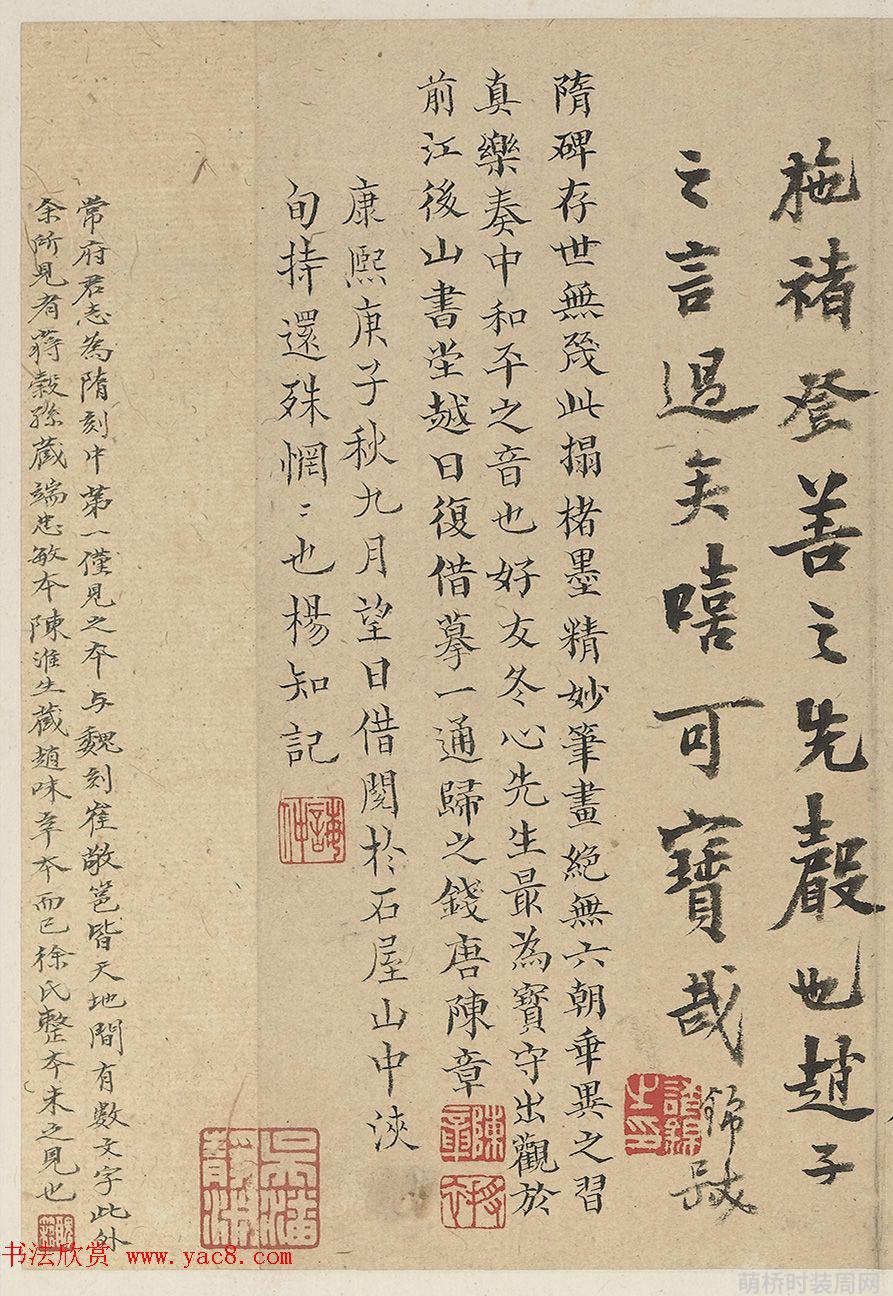 施褚登善之先聲也趙子
之言過矣嘻可寶哉
錦
隋碑存世無幾此搨楮墨精妙筆畫絕無六朝乖異之習
真樂奏中和平之音也好友冬心先生最為寶守出觀於
前江後山書堂越日復借摹一通歸之錢唐陳章
陳章
康熙庚子秋九月望日借閱於石屋山中浹
旬持還殊惘〻也楊知記
常府君志為隋刻中第一僅見之本与魏刻崔敬邕皆天地間有數文字此外
余所見有蔣穀孫藏端忠敏本陳淮生藏趙味辛本而已徐氏整本未之見也
吳潘靜淑
书法欣赏 www.yac8.com
萌桥时装周网